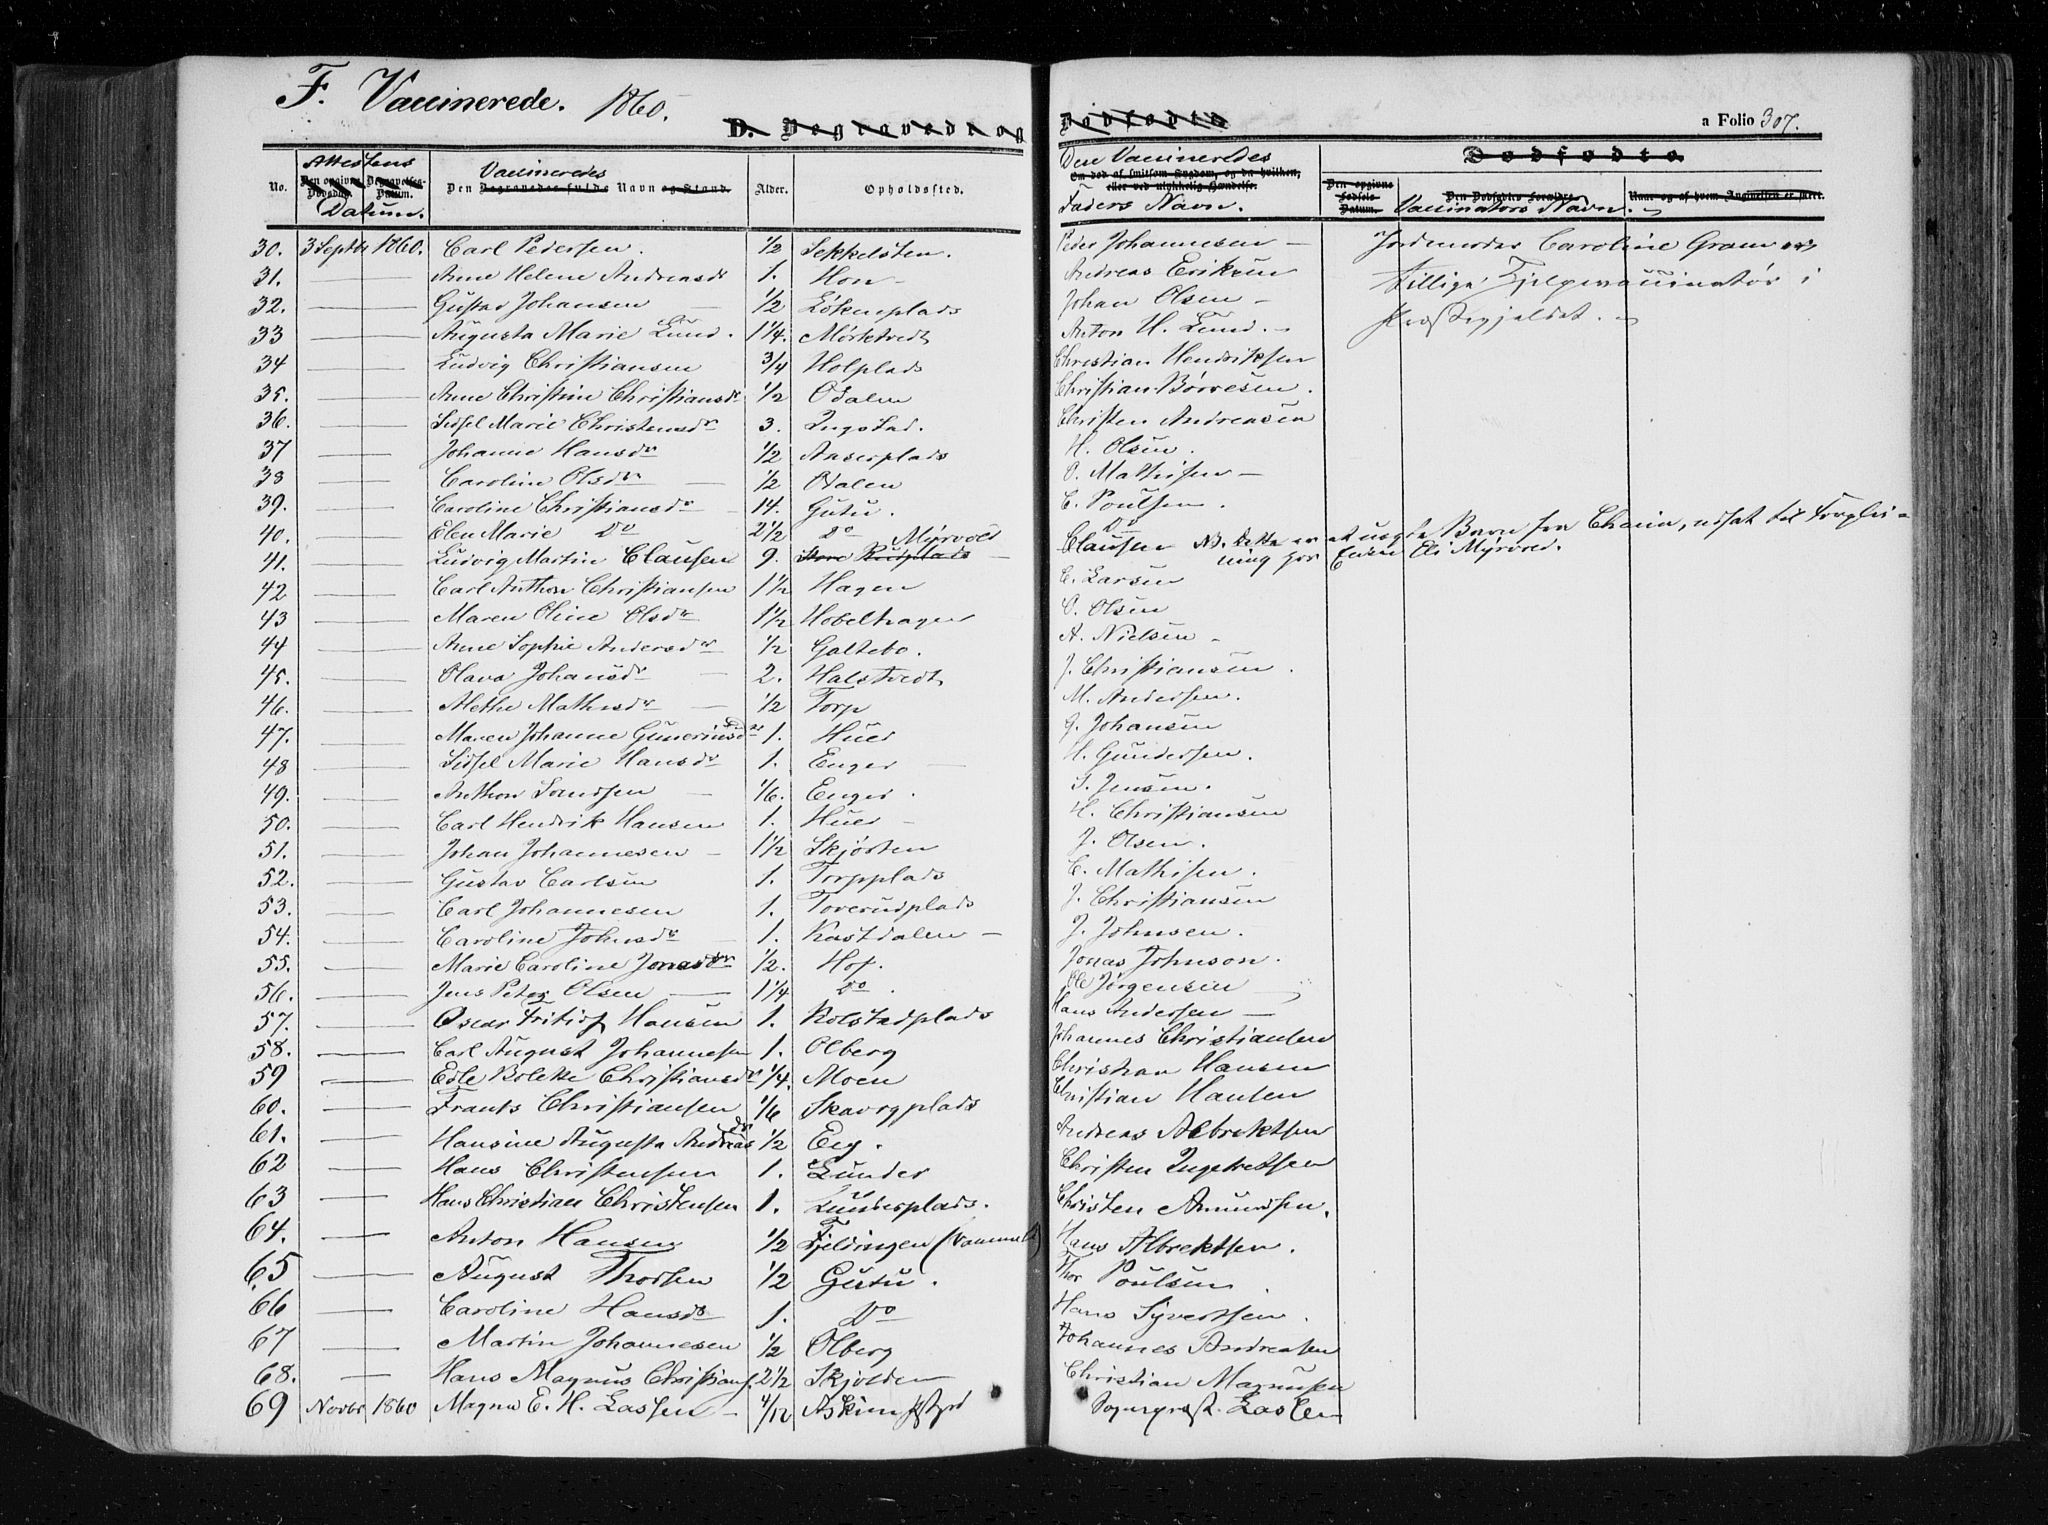 F. Vaccinerede. 1860.
D. Begravede og Dødfødte
a Folio 307.
Attestens Datum.
No. Den opgivne Dødsdag. Begravelses-Datum. Vaccineredes Den Begravedes fulde Navn og Stand. Alder. Opholdssted.
Den Vaccineredes Faders Navn.
Om død af smitsom Sygdom, og da hvilken, eller ved ulykkelig Hændelse.
Dødfødte.
Den opgivne Fødsels Datum. Den Dødfødtes Forældre. Naar og af hvem Anmeldelsen er skeet.
Vaccinators Navn.
30. 3 Septbr 1860. Carl Pedersen. 1/2 Sekkelsten. Peder Johannesen Jordemoder Caroline Gram
31. Anne Helene Andreasdr 1. Hon Andreas Eriksen tillige Hjelpevaccinatør i
32. Gustav Johansen 1/2 Lökenplads Johan Olsen Præstegjeldet.
33 Augusta Marie Lund. 1 1/4. Mörktvedt Anton H. Lund.
34 Ludvig Christiansen 3/4 Holplads Christian Hendriksen
35. Anne Christine Christiansdr 1/2 Odalen Christian Börresen.
36. Sidsel Marie Christensdr 3. Ingstad. Christen Andreasen
37 Johanne Hansdr 1/2 Anserplads H. Olsen.
38 Caroline Olsdr 1/2 Odalen O. Mathisen
39. Caroline Christiansdr 14. Gutu. C. Poulsen.
40. Elen Marie Do 2 1/2 Do Do
41. Ludvig Martin Clausen 9. Store Rudplads Myrvold Clausen NB. dette er et uægte Barn fra Chania, udsat til Forplei-
ning hos Enken Eli Myrvold.
42 Carl Anthon Christiansen 1 1/2 Hagen C. Larsen
43 Maren Oline Olsdr 1 1/2 Hobelhagen O. Olsen
44 Anne Sophie Andersdr 1/2 Galtebo. A. Nielsen
45. Olava Johansdr 2. Halstvedt J. Christiansen.
46. Alethe Mathisdr 1/2 Torp M. Andersen.
47. Maren Johanne Gunerius dr 1. Huer G. Johansen
48 Sidsel Marie Hansdr 1. Enger H. Gundersen.
49. Anthon Sørensen 1/6. Enger. S. Jensen.
50. Carl Hendrik Hansen 1. Huer H. Christiansen
51. Johan Johannesen 1 1/2 Skjörten J. Olsen.
52. Gustav Carlsen 1. Torpplads C. Mathisen.
53. Carl Johannesen 1. Toverudplads J. Christiansen
54. Caroline Johnsdr 1. Kastdalen J. Johnsen.
55. Marie Caroline Jonasdr 1/2. Hof. Jonas Johnson.
56. Jens Peter Olsen 1 1/4 Do. Ole Jörgensen
57. Oscar Fritiof Hansen 1. Kolstadplads Hans Andersen
58. Carl August Johannesen 1. Olberg Johannes Christiansen
59 Edle Bolette Christiansdr 1/4. Moen Christian Hansen
60. Frants Christiansen 1/6 Skavgplads Christian Hansen
61. Hansine Augusta Andreasdr 1/2 Eeg. Andreas Albrektsen
62 Hans Christensen 1. Lunder Christen Ingebretsen
63 Hans Christian Christensen 1. Lunderplads. Christen Amundsen.
64. Anton Hansen 1/2 Fjeldingen Hans Albrektsen.
65 August Thorsen 1/2 Gutu. Thor Poulsen
66 Caroline Hansdr 1. Do Hans Syvertsen.
67 Martin Johannesen 1/2 Olberg Johannes Andreasen
68. Hans Magnus Christians. 2 1/2 Skjolden Christian Magnusen
69 Novbr 1860 Magna E. H. Lassen 4/12 Askim Sogneprest. Lassen